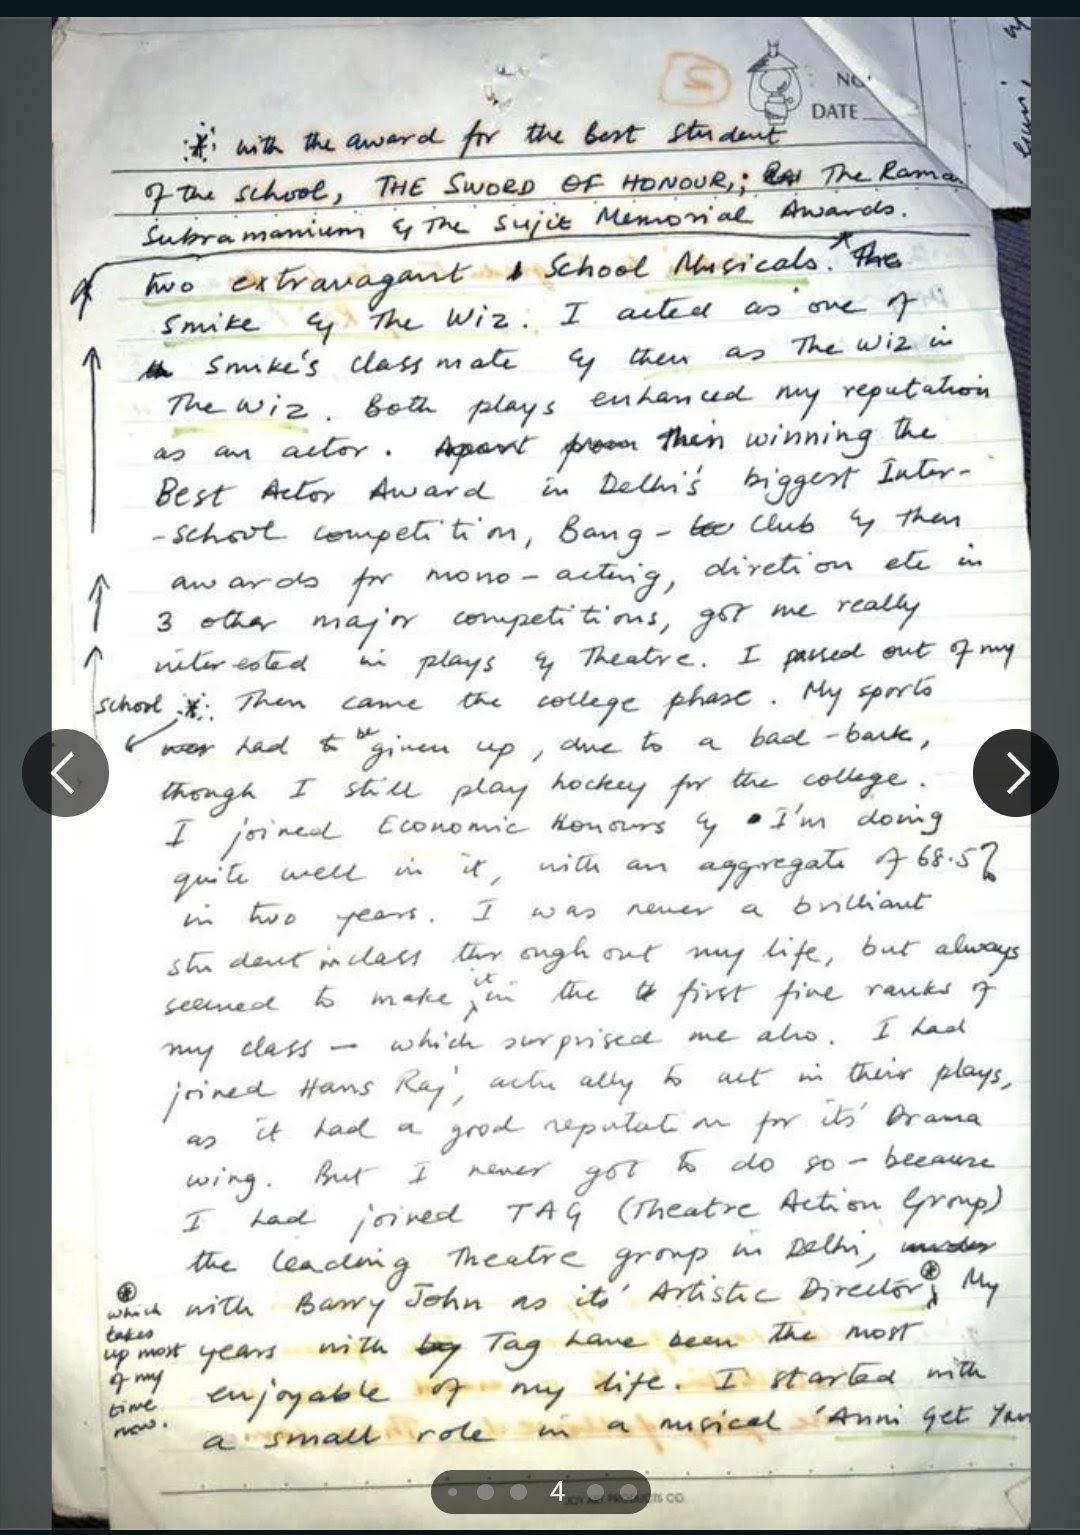 2
NO
DATE
with the award for the best student
of the school, THE SWORD OF HONOUR,; The Raman
Subramanium & The Sujit Memorial Awards.
two extravagant School Musicals. The
Smike & The Wiz. I acted as one of
Smike's classmate & then as The Wiz in
The Wiz. Both plays enhanced my reputation
as an actor. Apart from Then winning the
Best Actor Award in Delhi's biggest Inter-
-school competition, Bang- Club & then
awards for mono-acting, diretion etc in
3 other major competitions, got me really
interested in plays & Theatre. I passed out of my
school * Then came the college phase. My sports
had to be given up, due to a bad-back,
though I still play hockey for the college.
I joined Economic Honours & I'm doing
quite well in it, with an aggregate of 68.5%
in two years. I was never a brilliant
student in class throughout my life, but always
seemed to make it in the first five ranks of
my class - which surprised me also. I had
joined Hans Raj, actually to act in their plays,
as it had a good reputation for its' Drama
wing. But I never got to do so - because
I had joined TAG (Theatre Action Group)
the leading Theatre group in Delhi, under
with Barry John as its' Artistic Director. My
which
takes
up most
of my
time
now.
years with by Tag have been the most
enjoyable of my life. I started with
a small role in a musical 'Anni Get
JOY ART PRODUCTS CO.
4